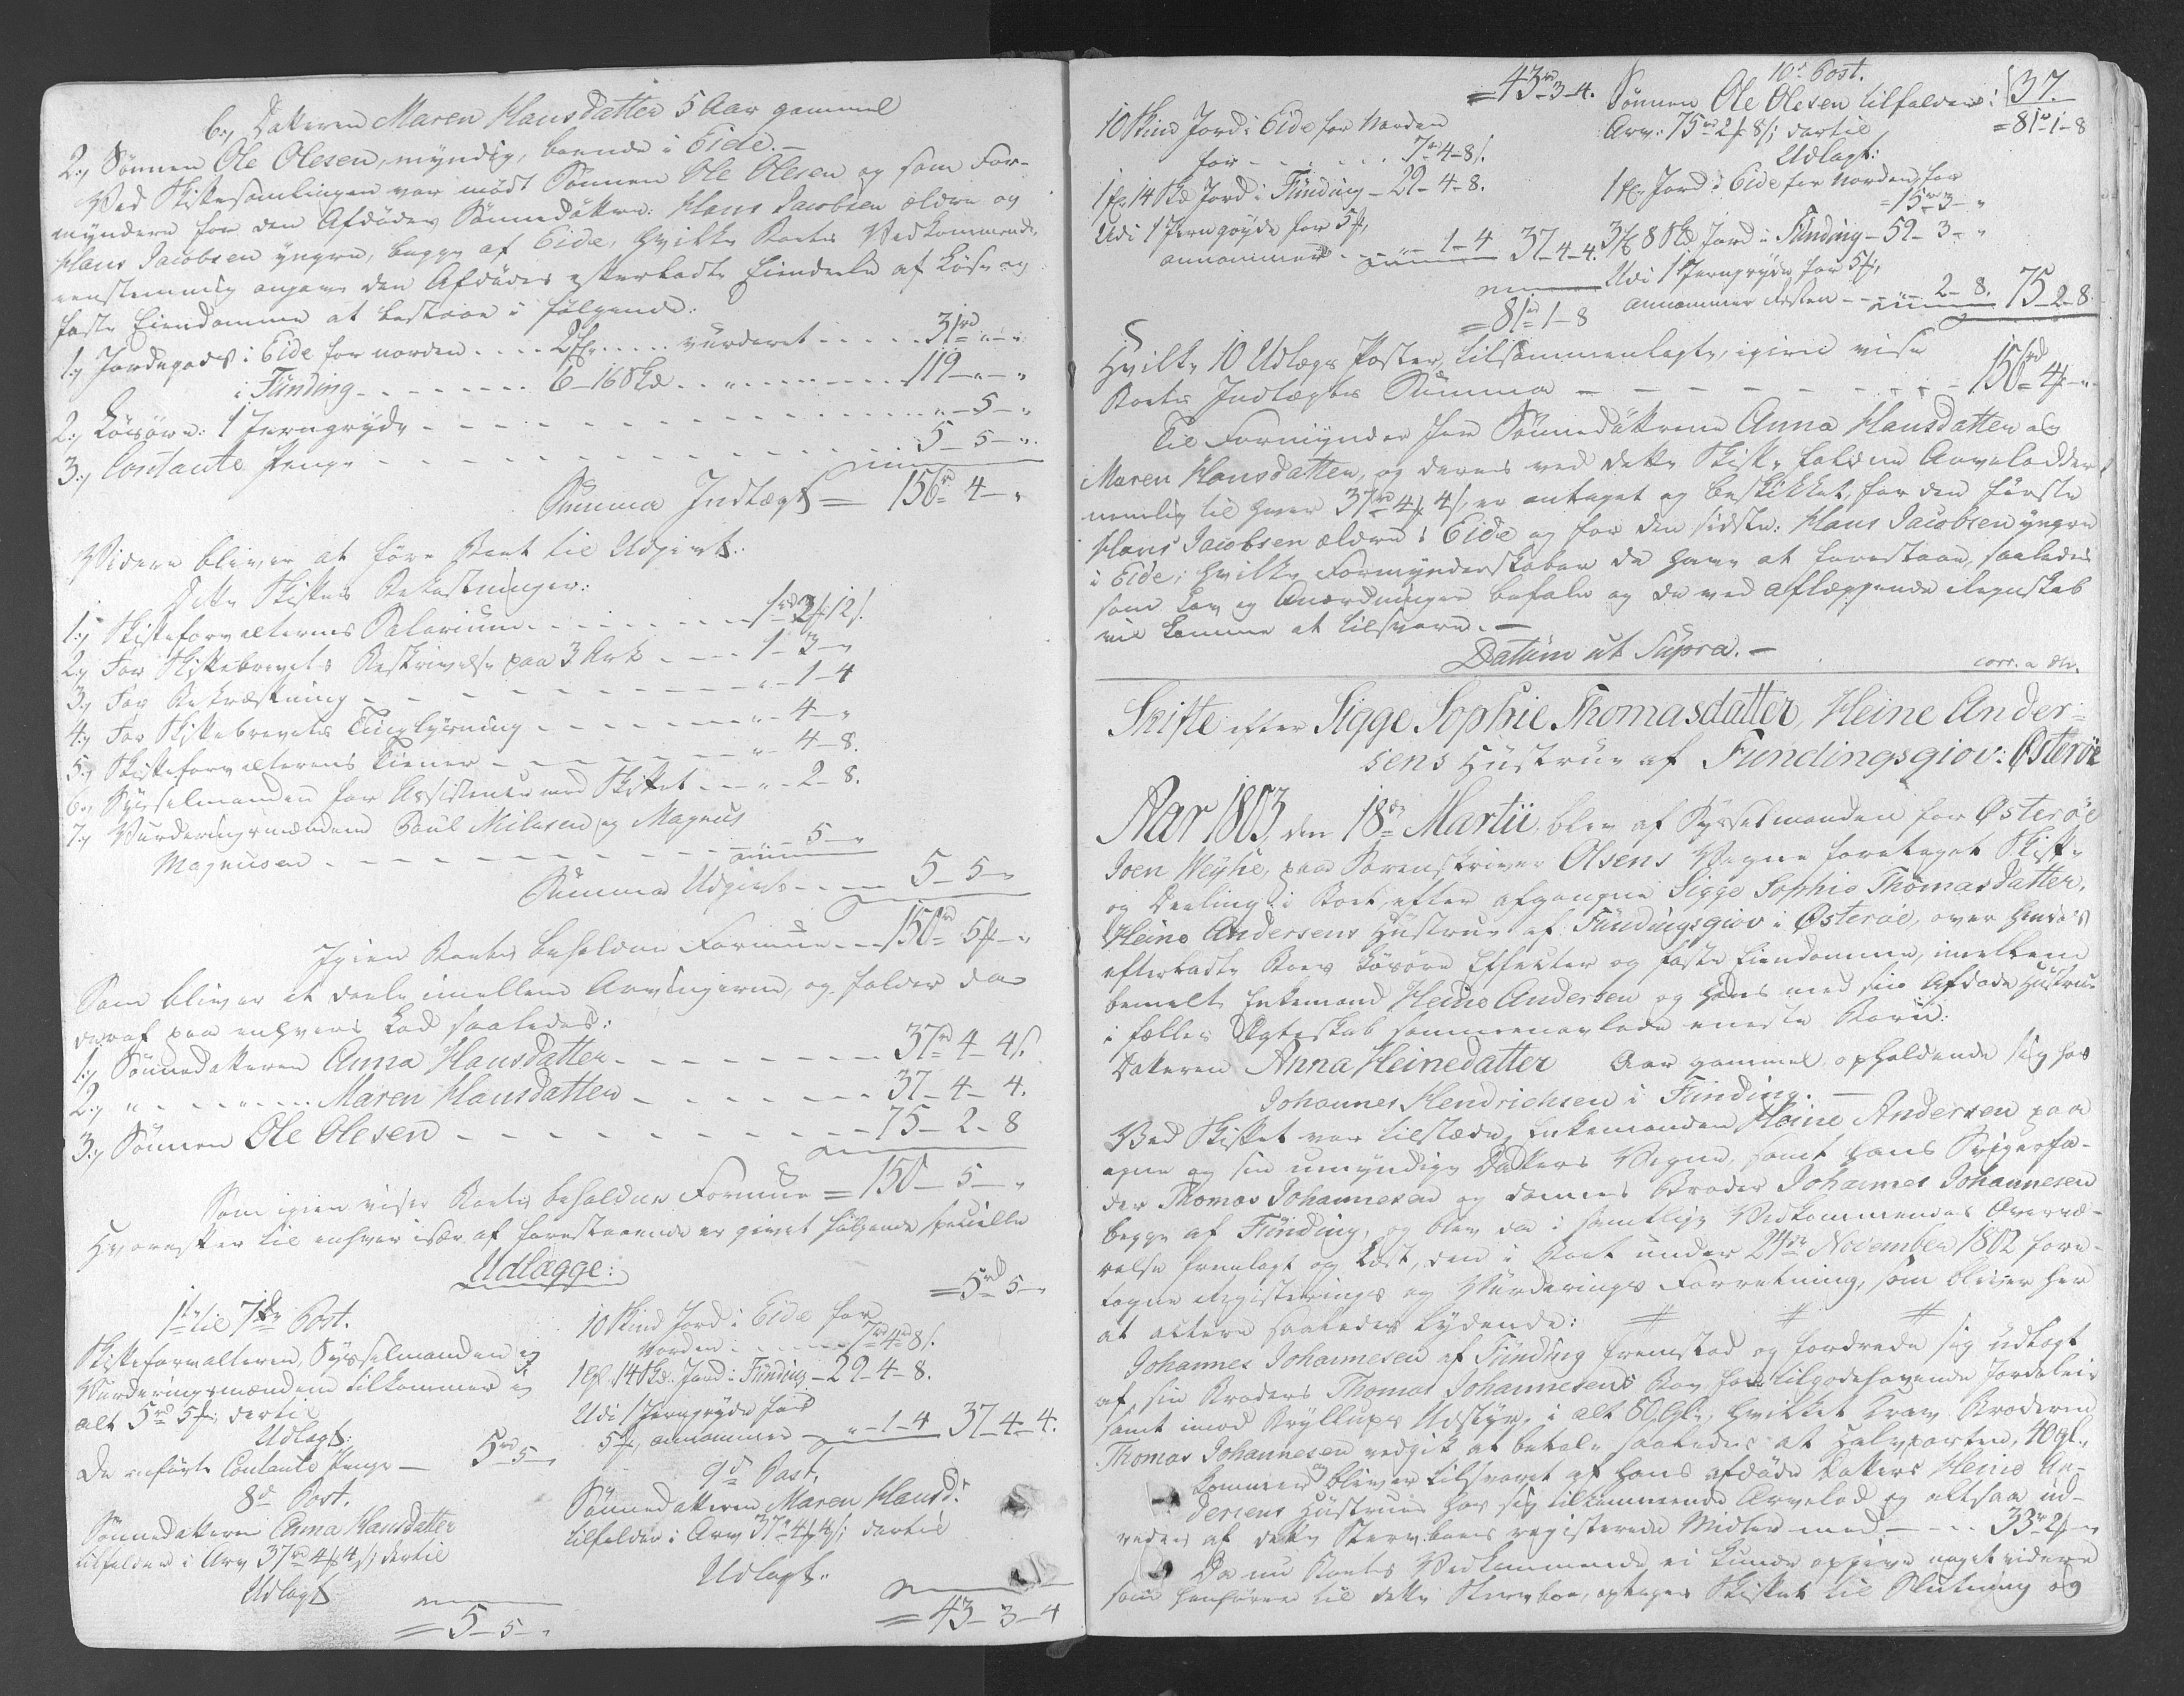 b., Datteren Maren Hansdatter 5 Aar gammel
2., Sønnen Ole Olesen, myndig, boende i Eide.-
Ved Skiftesamlingen var mødt Sønnen Ole Olesen og som For-
myndere for den Afdødes Sønnedøttre: Hans Jacobsen ældre og
Hans Jacobsen yngre, begge af Eide, hvilke Boets Vedkommende
eenstemmig angave den Afdødes efterladte Eiendeele af Løst og
faste Eiendomme at bestaae i følgende:
1., Jordegods i Eide for norden .... 2 ... vurderet ..... 31rd „-„
i Funding - - - - - - 6-16 Skd ........ 119-„-„
2., Løsøre: 1 Jerngryde - - - - - - „-5-„
3., Contante Penge - - - - - - 5-5-„
Summa Indtægt = 156rd 4-„
Videre bliver at føre Boet til Udgivt:
Dette Skiftes Bekostninger:
1., Skifteforvalterens Salarium - - - - 1rd 3f 12s.
2., For Skiftebrevets Beskrivelse paa 3 Ark - - - 1-3-„
3., For Bekræftning - - - - - - „-1-4
4., For Skiftebrevets Tinglysning - - - - „-4-„
5., Skifteforvalterens Tiener - - - - „-4-8.
6., Sysselmanden for Assistence ved Skiftet - - - „-2-8.
7., Vurderingsmændene Poul Nilusen og Magnus
Magnusen - - - - - - „-5-„
Summa Udgivt - - - 5-5-„
Igien Boets beholdne Formue - - 150rd 5f-„
Som bliver at deele imellem Arvingerne, og falder da
deraf paa enhvers Lod saaledes:
1., Sønnedatteren Anna Hansdatter - - - - 37rd 4-4s.
2., „ - - - „ - - - Maren Hansdatter - - - - 37-4-4.
3., Sønnen Ole Olesen - - - - - - 75-2-8
Som igien viser Boets beholdne Formue = 150-5-„
Hvorefter til enhver især af forestaaende er givet følgende specielle
Udlægge:
1te til 7de Post.
Skifteforvalteren, Sysselmanden og
Vurderingsmændene tilkommer i
alt 5rd 5f, dertil
Udlagt:
De anførte Contante Penge - 5rd 5-„
8de Post.
Sønnedatteren Anna Hansdatter
tilfalder i Arv 37rd 4f 4s; dertil
Udlagt
= 5-5-„
= 5rd 5-„
10 Skind Jord i Eide for
Norden - - - - 7rd 4f 8s.
1 14 Skd. Jord i Funding - 29-4-8.
Udi 1 Jerngryde for
5f, annammer - „-1-4 37-4-4.
9de Post.
Sønnedatteren Maren Hansd:
tilfalder i Arv 37rd 4f 4s; dertil
Udlagt:
= 43-3-4
37.
= 43rd 3-4.
10 Skind Jord i Eide for Norden
for - - - - 7rd 4-8s.
1 14 Skd Jord i Funding - 29-4-8.
Udi 1 Jerngryde for 5f,
annammer - - „-1-4 37-4-4.
= 81rd 1-8
10de Post.
Sønnen Ole Olesen tilfalder i
Arv: 75rd 2f 8s; dertil = 81rd 1-8
Udlagt:
1 Jord i Eide for Norden, for
15rd 3-„
3 8 Skd Jord i Funding - 59-3-„
Udi 1 Jerngryde for 5f,
annammer Resten - - „-2-8. 75-2-8.
Hvilke 10 Udlægs Poster, tilsammenlagte, igien vise
Boets Indtægtes Summa - - - - - - 156rd 4f-„
Til Formynder for Sønnedøttrene Anna Hansdatter og
Maren Hansdatter, og deres ved dette Skifte faldne Arvelodder,
nemlig til hver 37rd 4f 4s, er antaget og beskikket, for den første
Hans Jacobsen ældre i Eide og for den sidste: Hans Jacobsen yngre
i Eide; hvilke Formynderskaber de have at forestaae, saaledes
som Lov og Anordninger befale og de ved aflæggende Regnskab
vil komme at tilsvare.-
Datum ut Supra.-
corr. a
Skifte efter Sigge Sophie Thomasdatter, Heine Ander=
sens Hustrue af Fundingsgiov: Østerøe
Aar 1803, den 18de Martii, blev af Sysselmanden for Østerøe
Joen Weyhe, paa Sorenskriver Olsens Vegne foretaget Skifte
og Deeling i Boet efter afgangne Sigge Sophie Thomasdatter,
Heine Andersens Hustrue af Fundingsgiov i Østerøe, over hendes
efterladte Boes Løsøre Effecter og faste Eiendomme, imellem
bemelte Enkemand Heine Andersen og hans med sin Afdøde Hustrue
i fælles Ægteskab sammenavlede eneste Barn:
Datteren Anna Heinedatter Aar gammel, opholdende sig hos
Johannes Hendrichsen i Funding.-
Ved Skiftet var tilstæde, Enkemanden Heine Andersen paa
egne og sin umyndige Datters Vegne, samt hans Svigerfa-
der Thomas Johannesen og dennes Broder Johannes Johannesen
begge af Funding, og blev da i samtlige Vedkommendes Overvæ-
relse fremlagt og Læst, den i Boet under 24de November 1802 fore-
tagne Registerings og Vurderings Forretning, som bliver her
at actere saaledes lydende: # # #
Johannes Johannesen af Funding fremstod og fordrede sig udlagt
af sin Broders Thomas Johannesens Boe for tilgodehavende Jordeleie
samt imod Bryllups Udstyr, i alt 80 gl:, hvilket Krav Broderen
Thomas Johannesen vedgik at betale saaledes at Halvparten, 40 gl.,
kommer og bliver tilsvaret af hans afdøde Datters Heine An-
dersens Hustrues hos sig tilkommende Arvelod og altsaa ud-
redes af dette Sterbboes registerede Midler med - - - 33rd 2f-„
Da nu Boets Vedkommende ei kunde opgive noget videre
som henhører til dette Sterboe, optages Skiftet til Slutning og